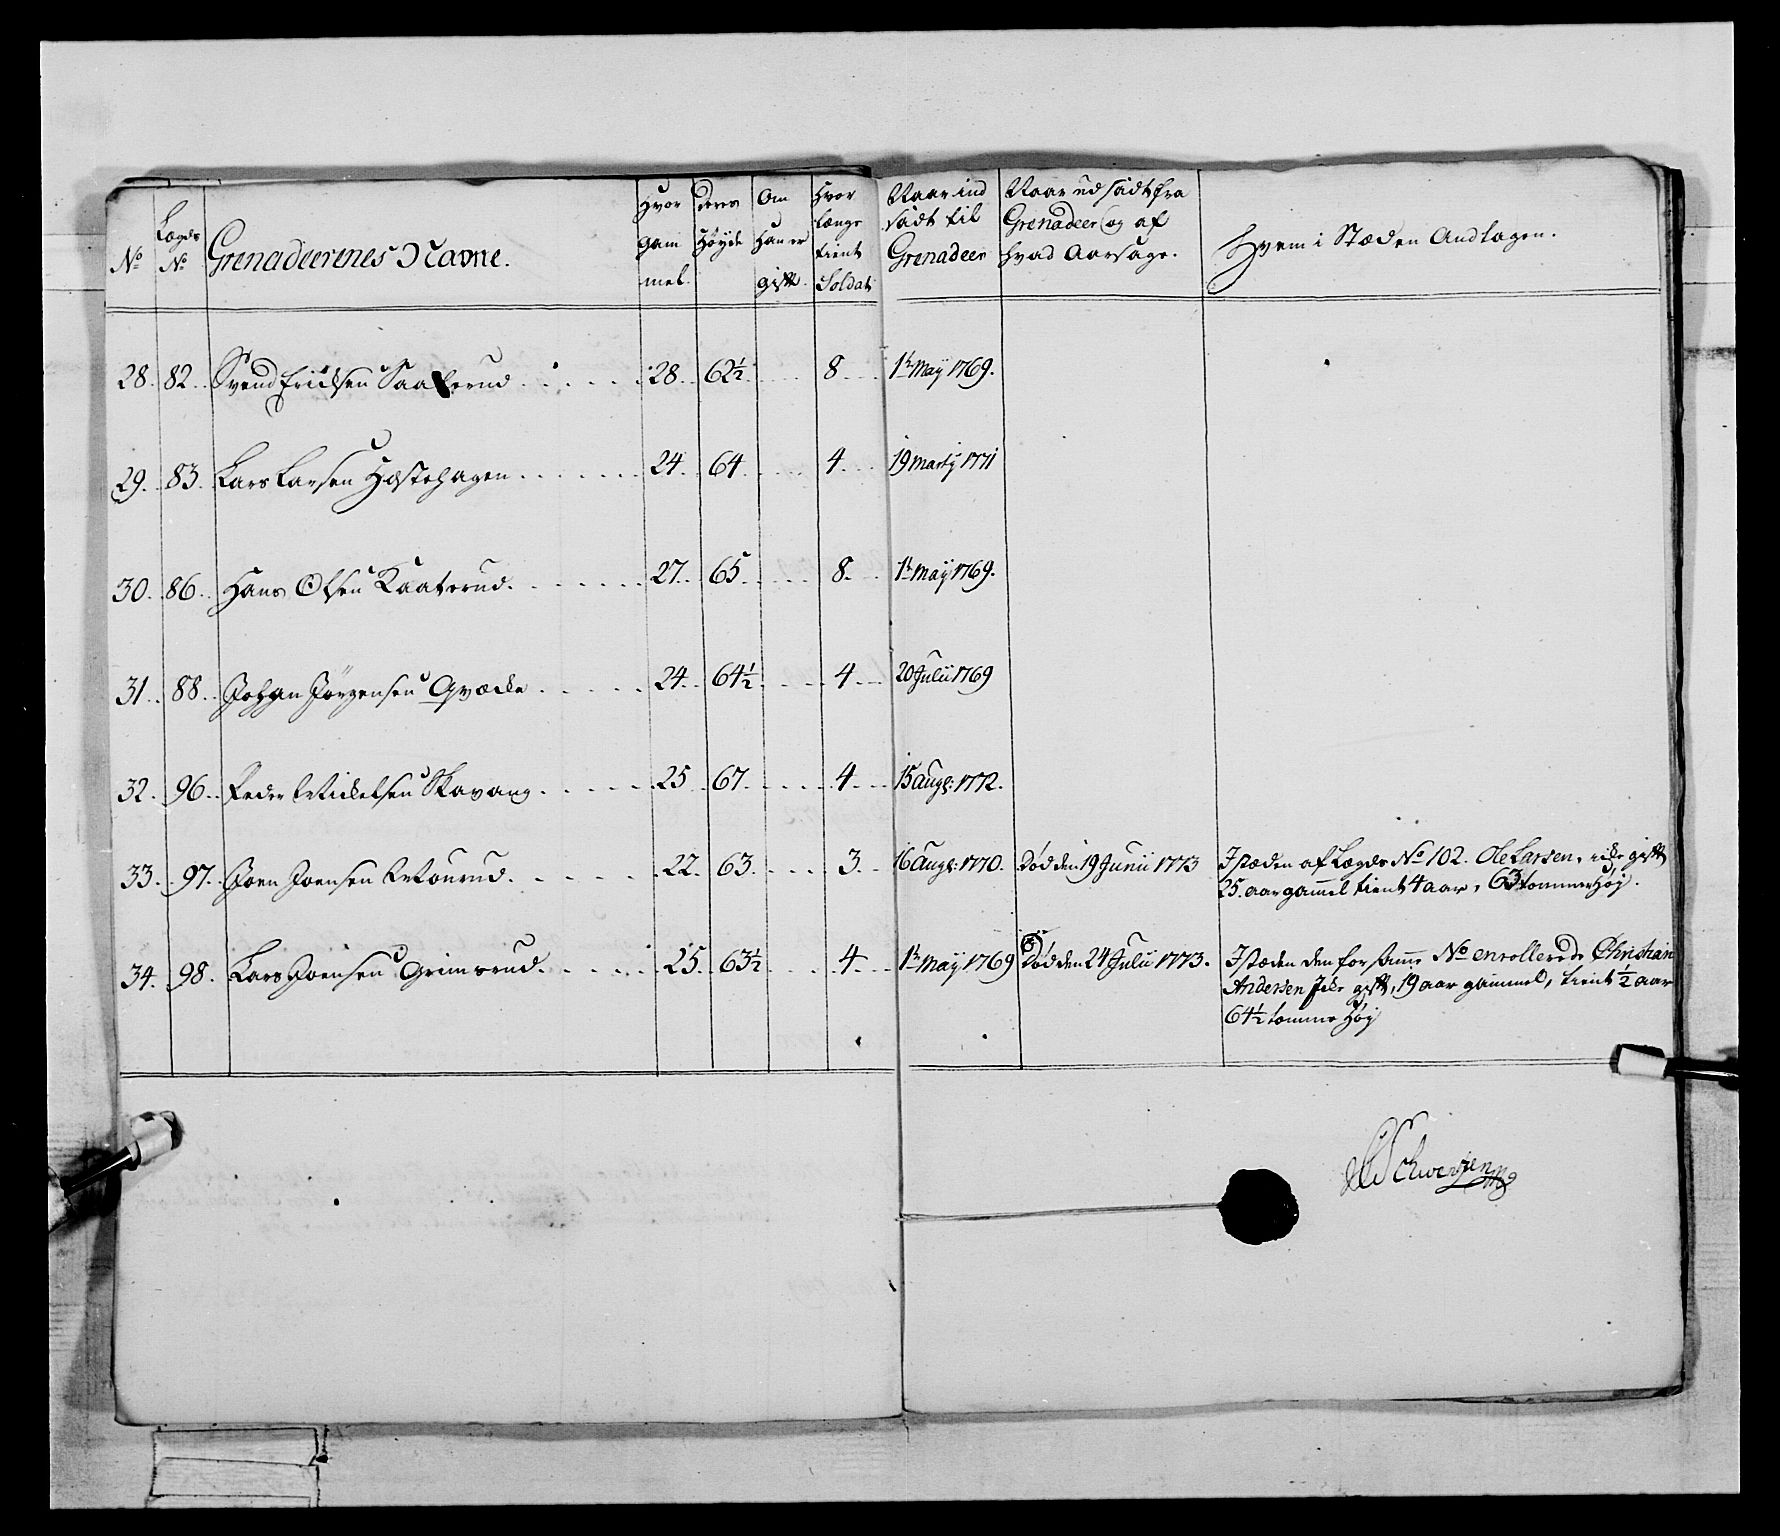 No
Lægds No
Grenadeerenes Navne.
Hvor gam mel.
deres Høyde
Om Han er gift.
Hvor længe tient Soldat
Naar ind sadt til Grenadeer
Naar udsadt fra Grenadeer og af hvad Aarsage.
Hvem i Stæden Andtagen.
28. 82. Svend Ericksen Saaxerud 28. 62½ 8 1te Maÿ 1769.
29. 83. Lars Larsen Hæstehagen 24. 64. 4. 19 Martÿ 1771
30. 86. Hans Olsen Kaaterud. 27. 65. 8. 1te Maÿ 1769.
31. 88. Johan Jörgensen Qvæcke 24. 64½ 4 20 Julii 1769
32. 96. Peder Mickelsen Skavang 25 67. 4. 15 Augs: 1772.
33. 97. Joen Joensen 22. 63. 3. 16 Augs: 1770. Död den 19 Junii 1773 I stæden af Lægds No 102. Ole Larsen, icke gift
25. aar gammel tient 4 aar, 63 tommer Høÿ.
34. 98. Lars Joensen Grimsrud. 25. 63½ 4. 1te Maÿ 1769 Död den 24 Julii 1773. I stæden den for samme No enrollerede Christian
Andersen Icke gift, 19 aar gammel, tient ½ aar
64½ tomme Höÿ
Schwersen